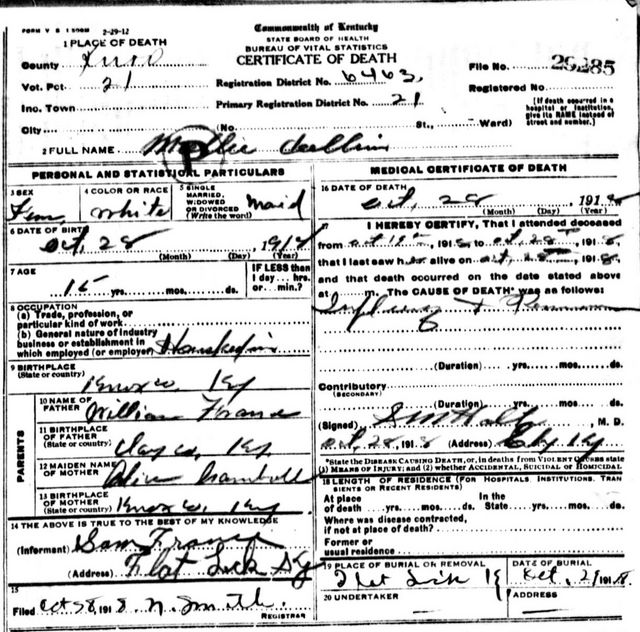 FORM V S 1 2-29-12
Commonwealth of Kentucky
STATE BOARD OF HEALTH
BUREAU OF VITAL STATISTICS
CERTIFICATE OF DEATH
1 PLACE OF DEATH
County
Vot. Pct 21
Inc. Town
City (No. St., Ward)
Registration District No. 6463
Primary Registration District No. 21
File No. 29285
Registered No.
[If death occurred in a hospital or institution, give its NAME instead of street and number.]
2 FULL NAME Mollie
PERSONAL AND STATISTICAL PARTICULARS
3 SEX Fem
4 COLOR OR RACE White
5 SINGLE MARRIED, WIDOWED OR DIVORCED (Write the word) Maid
6 DATE OF BIRTH
Oct, 28, 191
(Month) (Day) (Year)
7 AGE
15 yrs. mos. ds.
IF LESS than 1 day... hrs. or min.?
8 OCCUPATION
(a) Trade, profession, or particular kind of work
(b) General nature of industry business or establishment in which employed (or employer)
9 BIRTHPLACE
(State or country) Knox co, Ky
PARENTS
10 NAME OF FATHER William
11 BIRTHPLACE OF FATHER (State or country) Clay co, Ky
12 MAIDEN NAME OF MOTHER
13 BIRTHPLACE OF MOTHER (State or country) Knox co, Ky
14 THE ABOVE IS TRUE TO THE BEST OF MY KNOWLEDGE
(Informant) Sam
(Address) Flat Lick Ky
15
Filed Oct 28 1918 N. Smith
REGISTRAR
MEDICAL CERTIFICATE OF DEATH
16 DATE OF DEATH
Oct, 28, 191
(Month) (Day) (Year)
I HEREBY CERTIFY, That I attended deceased
from Oct, 1918, to Oct, 28, 1918,
that I last saw h alive on Oct, 1918,
and that death occurred on the date stated above
at m. The CAUSE OF DEATH* was as follows:
(Duration) yrs. mos. ds.
Contributory
(SECONDARY)
(Duration) yrs. mos. ds.
(Signed) , M. D.
Oct, 28, 1918 (Address) Ky
*State the DISEASE CAUSING DEATH, or, in deaths from VIOLENT CAUSES state (1) MEANS OF INJURY; and (2) whether ACCIDENTAL, SUICIDAL OR HOMICIDAL
18 LENGTH OF RESIDENCE (FOR HOSPITALS, INSTITUTIONS, TRANSIENTS OR RECENT RESIDENTS)
At place of death yrs. mos. ds. In the State yrs. mos. ds.
Where was disease contracted, if not at place of death?
Former or usual residence
19 PLACE OF BURIAL OR REMOVAL
Flat Lick Ky
DATE OF BURIAL
Oct, 29 1918
20 UNDERTAKER
ADDRESS